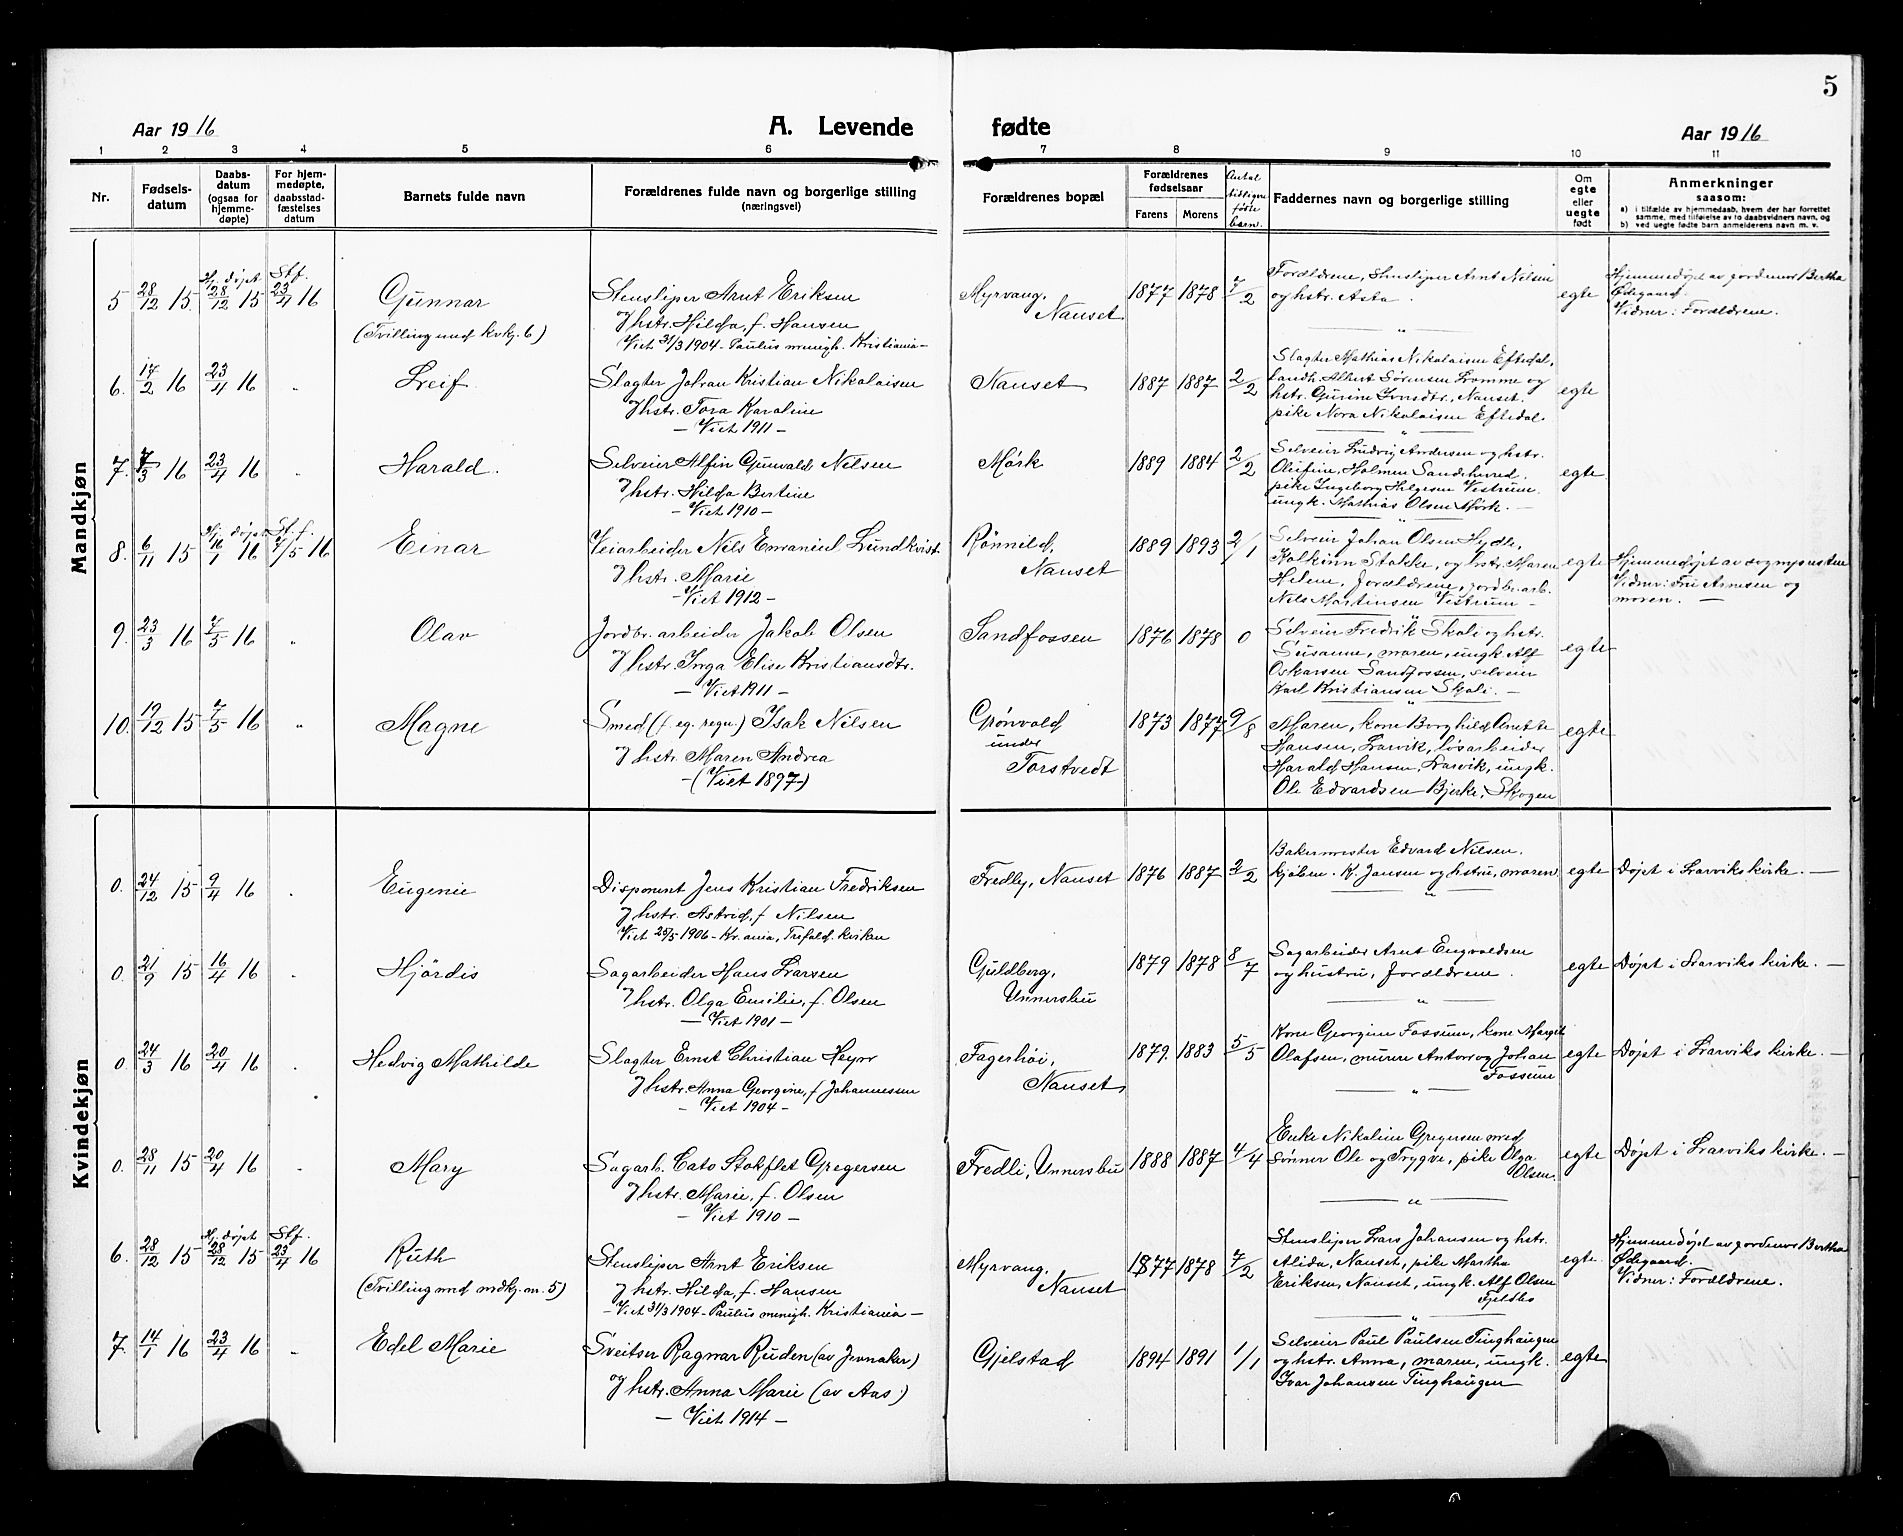 5
Aar 1916
A. Levende fødte
Aar 1916
1 2 3 4 5 6 7 8 9 10 11
Nr.
Fødsels-
datum
Daabs-
datum
(ogsaa for
hjemme-
døpte)
For hjem-
medøpte,
daabsstad-
fæstelses
datum
Barnets fulde navn
Forældrenes fulde navn og borgerlige stilling
(næringsvei)
Forældrenes bopæl
Forældrenes
fødselsaar
Farens Morens
Antal
tidligere
fødte
barn.
Faddernes navn og borgerlige stilling
Om
egte
eller
uegte
født
Anmerkninger
saasom:
a) i tilfælde av hjemmedaab, hvem der har forrettet
samme, med tilføielse av to daabsvidners navn, og
b) ved uegte fødte barn anmelderens navn m. v.
Mandkjøn
5 28/12 15. Hj. døpt 28/12 15 Stf. 23/4 16
Gunnar
(Tvilling med kvkj. 6)
Stensliper Arnt Eriksen
og hstr. Hilda, f. Hansen
Viet 31/3 1904 - Paulus menigh. Kristiania -
Myrvang,
Nanset
1877 1878 7/2
Forældrene, Stensliper Arnt Nilsen
og hstr. Asta.
egte
Hjemmedøpt av jordmor Bertha
Ødegaard.
Vidner: Forældrene.
6. 17/2 16 23/4 16 "
Leif
Slagter Johan Kristian Nikolaisen
og hstr. Tora Karoline
- Viet 1911 -
Nanset
1887 1887 2/2
Slagter Mathias Nikolaisen Eftedal,
landh. Albert Sørensen Lomme og
hstr. Gurine, Nanset.
pike Nora Nikolaisen Eftedal
egte
7. 7/3 16 23/4 16 "
Harald.
Selveier Alfin Gunvald Nilsen
og hstr. Hilda Bertine
- Viet 1910 -
Mørk
1889 1884 2/2
Selveier Ludvig Andersen og hstr.
Olufine, Holmen Sandeherred
pike Ingeborg Helgesen Vestrum
ungk. Mathias Olsen Mørk. -
egte
8. 6/11 15 Hj. døpt 16/1 16 St.f. 7/5 16
Einar
Veiarbeider Nils Emanuel Lundkvist
og hstr. Marie
- Viet 1912 -
Rønnild,
Nanset
1889 1893 2/1
Selveier Johan Olsen Hydle,
Stokke, og hstr. Maren
Helene, forældrene, jordbr.arb.
Nils Martinsen Vestrum -
egte
Hjemmedøpt av sognepresten
Vidner: Fru Arnesen og
moren. -
9. 23/3 16 7/5 16 "
Olav
Jordbr. arbeider Jakob Olsen
og hstr. Inga Elise Kristiansdtr.
- Viet 1911 -
Sandfossen
1876 1878 0
Selveier Fredrik Skoli og hstr.
Susanne, moren, ungk. Alf
Oskarsen Sandfossen, selveier
Karl Kristiansen Skoli. -
egte
10. 19/12 15 7/5 16 "
Magne
Smed (f. eg. regn.) Isak Nilsen
og hstr. Maren Andrea
- (Viet 1897) -
Grønvold
under
Torstvedt
1873 1877 9/8
Moren, kone Borghild Anette
Hansen, Larvik, løsarbeider
Harald Hansen, Larvik, ungk.
Ole Edvardsen Bjerke, Skogen
egte
Kvindekjøn
0. 24/12 15 9/4 16
Eugenie
Disponent Jens Kristian Fredriksen
og hstr. Astrid, f. Nilsen
Viet 25/5 1906 - Kr.ania, Trefold. kirken
Fredly, Nanset
1876 1887 2/2
Bakermester Edvard Nilsen.
kjøbm. K. Jansen og hstru, moren
egte
Døpt i Larviks kirke. -
0. 21/9 15 16/4 16 "
Hjördis
Sagarbeider Hans Larsen
og hstr. Olga Emilie, f. Olsen
- Viet 1901 -
Guldberg,
Unnersbu
1879 1878 8/7
Sagarbeider Arnt Engvaldsen
og hustru, forældrene.
egte
Døpt i Larviks kirke. -
0. 24/3 16 20/4 16
Hedvig Mathilde
Slagter Ernst Christian Heyer
og hstr. Anna Georgine, f. Johannessen
- Viet 1904 -
Fagerhöi,
Nanset
1879. 1883 5/5
Kone Georgine Fossum, kone Margit
Olafsen, murer Anton og Johan
Fossum
egte
Døpt i Larviks kirke. -
0. 28/11 15 20/4 16
Mary
Sagarb. Cato Stokflet Gregersen
og hstr. Marie, f. Olsen
- Viet 1910 -
Fredli, Unnersbu
1888 1887 4/4
Enke Nikoline Gregersen med
sønner Ole og Trygve, pike Olga
Olsen.
egte
Døpt i Larviks kirke. -
6. 28/12 15 Hj. døpt 28/12 15 Stf. 23/4 16
Ruth
(Tvilling med mdkj. nr. 5)
Stensliper Arnt Eriksen
og hstr. Hilda, f. Hansen
- Viet 31/3 1904 - Paulus menigh. Kristiania -
Myrvang,
Nanset
1877 1878 7/2
Stensliper Lars Johansen og hstr.
Alida, Nanset, pike Martha
Eriksen, Nanset, ungk. Alf Olsen
Fjeldbo
egte.
Hjemmedøpt av jordmor Bertha
Ødegaard.
Vidner: Forældrene.
7. 14/1 16 23/4 16 "
Edel Marie
Sveitser Ragnar Ruden (av Jevnaker)
og hstr. Anna Marie (av Aas)
- Viet 1914 -
Gjelstad
1894 1891 1/1
Selveier Paul Paulsen Tinghaugen
og hstr. Anna, moren, ungk.
Ivar Johansen Tinghaugen
egte